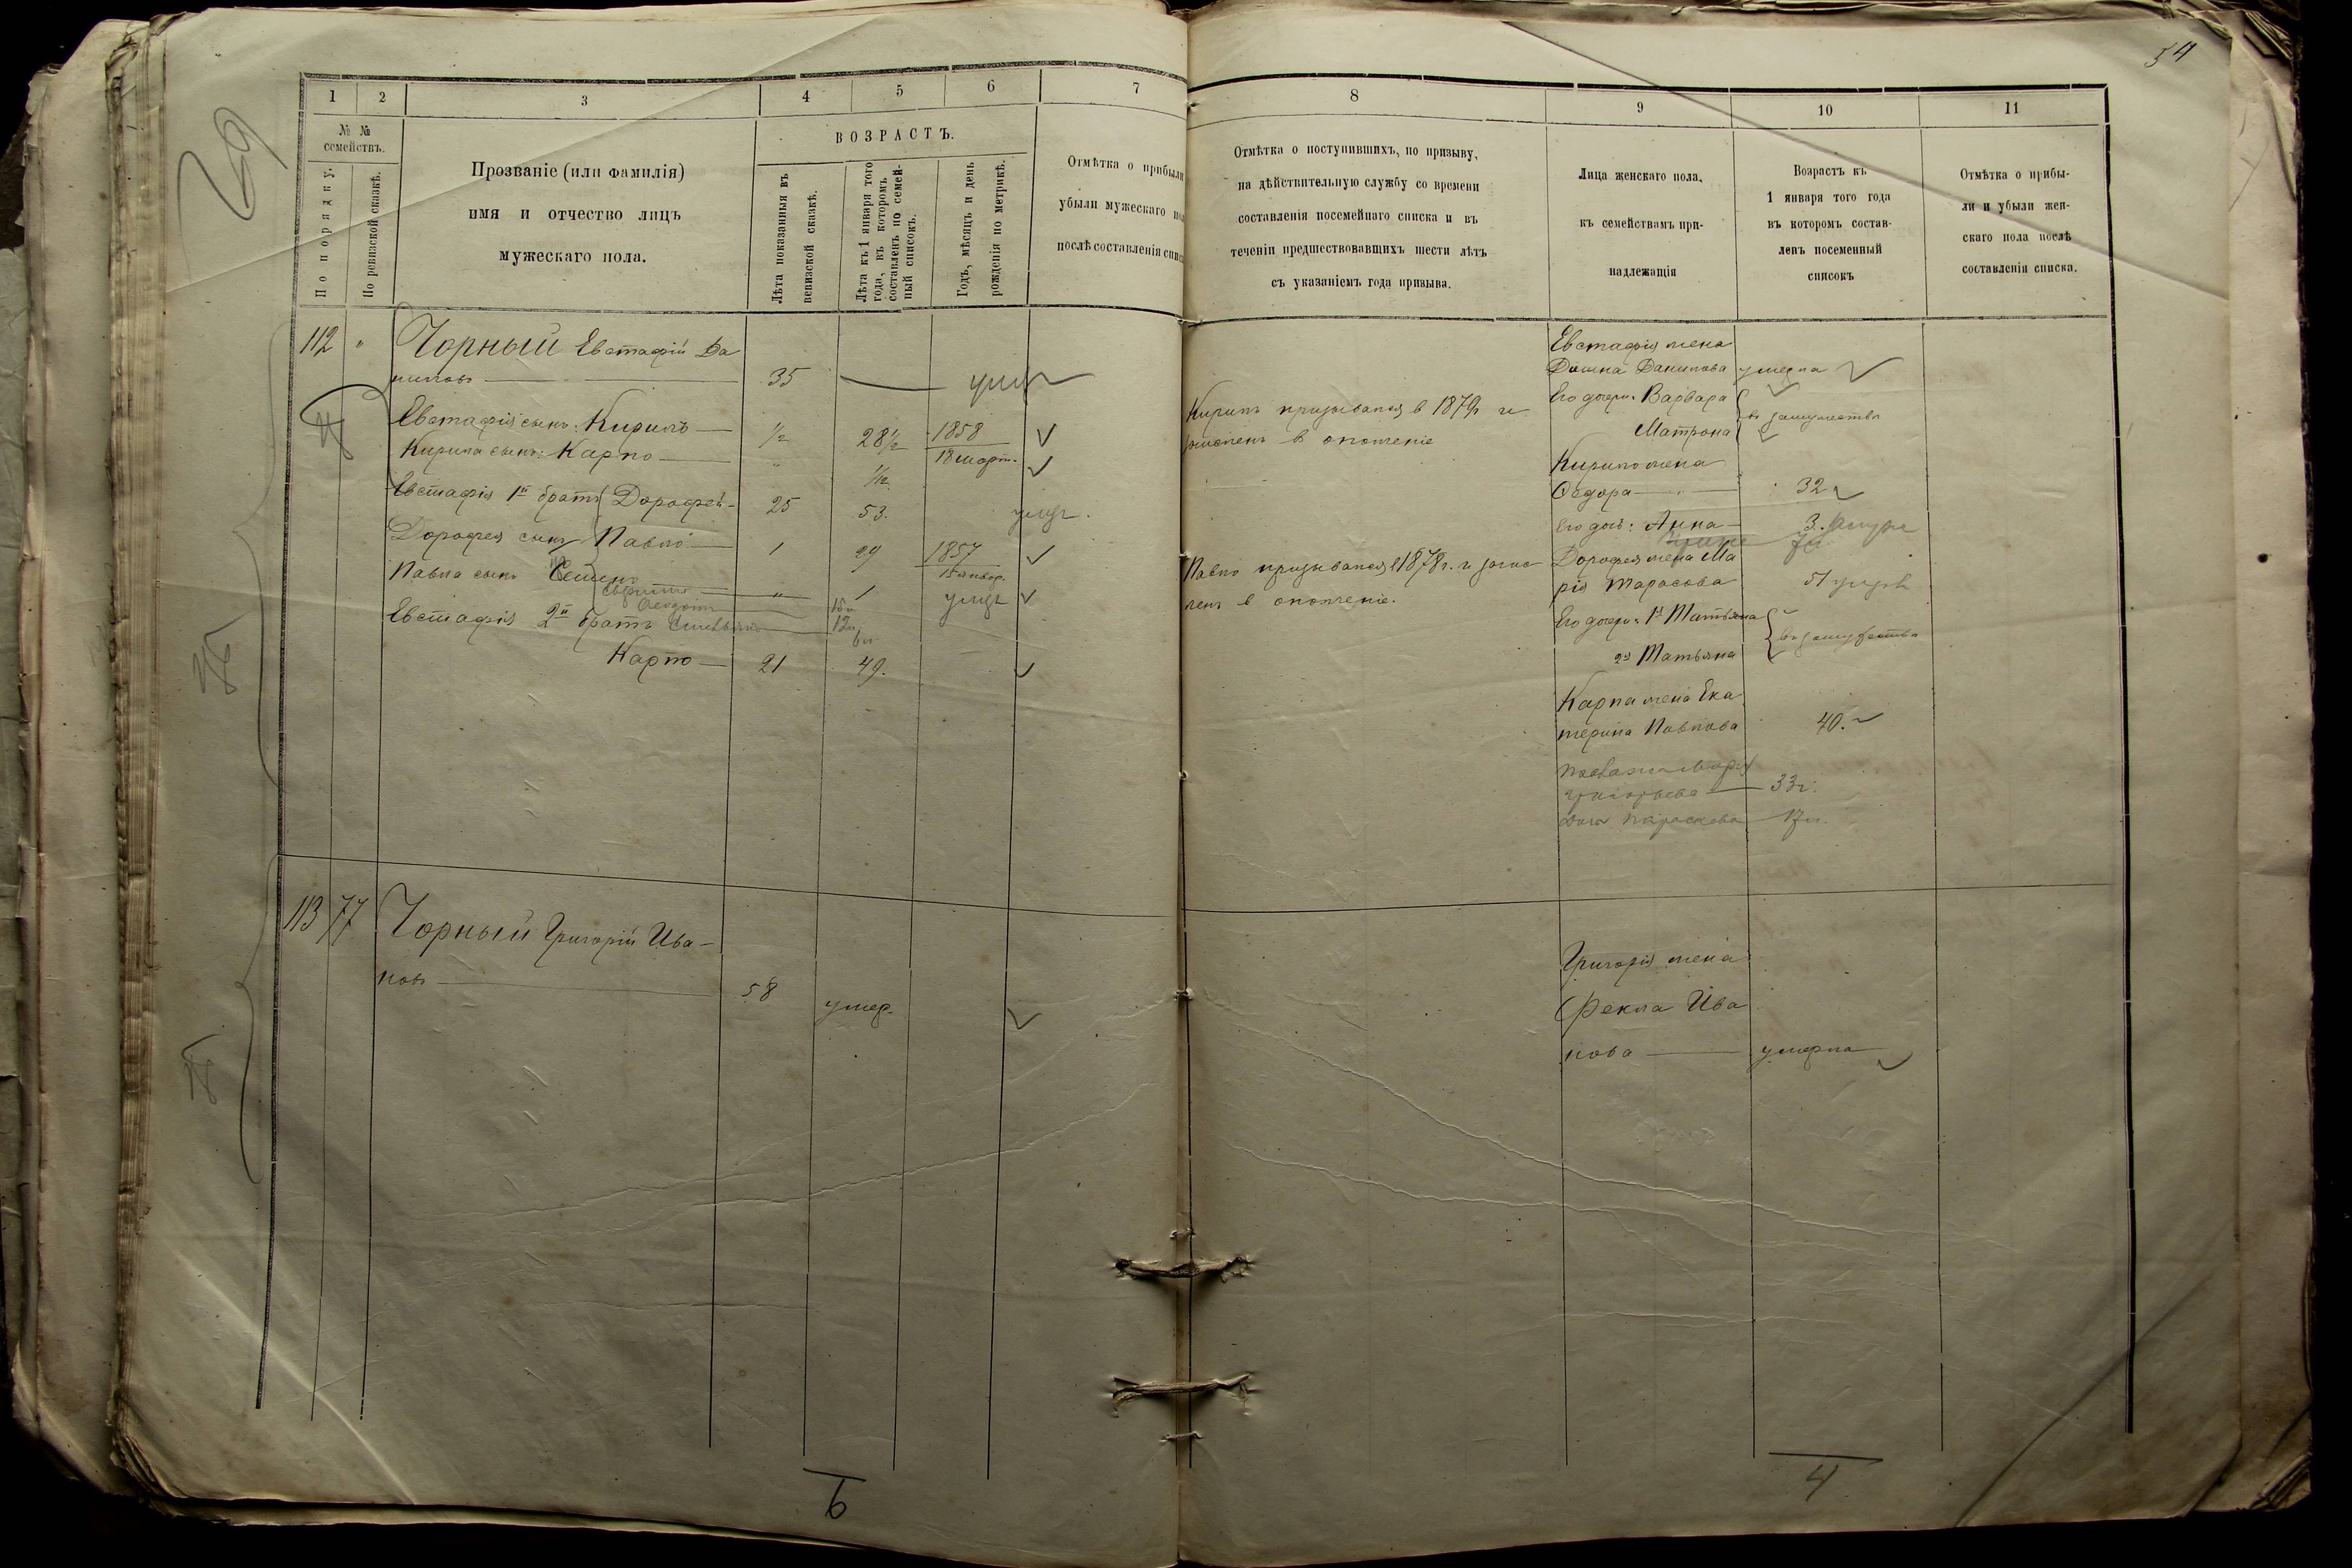 54
69
1 2 3 4 5 6 7
№ № семействъ.
По порядку.
По ревизской сказкѣ.
Прозваніе (или фамилія)
имя и отчество лицъ
мужескаго пола.
ВОЗРАСТЪ.
Лѣта показанныя въ
ревизской сказкѣ.
Лѣта къ 1 января того
года, въ которомъ
составленъ по семей-
ный списокъ.
Годъ, мѣсяцъ и день
рожденія по метрикѣ.
Отмѣтка о прибыли
убыли мужескаго
послѣ составленія
112 " Чорный Евстафій Да
ниловъ 35
Евстафія сынъ: Кирилъ 1/2 28 1/2 1858
18 март.
Кирила сынъ: Карпо " 1/2
Евстафія 1й братъ Дорофей 25 53.
Дорофея сынъ Павло 1 29 1857
15 январ.
Павла сынъ Семенъ " 1
Евстафія 2й братъ
Карпо 21 49.
113 77 Чорный Григорій Ива-
новъ 58 умер.
6
8 9 10 11
Отмѣтка о поступившихъ, по призыву,
на дѣйствительную службу со времени
составленія посемейнаго списка и въ
теченіи предшествовавщихъ шести лѣтъ
съ указаніемъ года призыва.
Лица женскаго пола,
къ семействамъ при-
надлежащія
Возрастъ къ
1 января того года
въ которомъ состав-
ленъ посеменный
списокъ
Отмѣтка о прибы-
ли и убыли жен-
скаго пола послѣ
составленія списка.
Евстафія жена
Домна Данилова умерла
Кирилъ призывался в 1879 г и
зачисленъ в ополченіе
Его дочери: Варвара
Матрона
въ замужествѣ
Кирила жена
Федора 32
Его доч: Анна 3.
Павло призывался в 1878 г. и зачис
ленъ в ополченіе.
Дорофея жена Ма
рія Тарасова 51
Его дочери: 1я Татьяна
2я Татьяна
въ замужествѣ
Карпа жена Ека
терина Павлова 40.
Григорьева 33 г.
Параскева 17 л.
Григорія жена
Фекла Ива
нова умерла
4